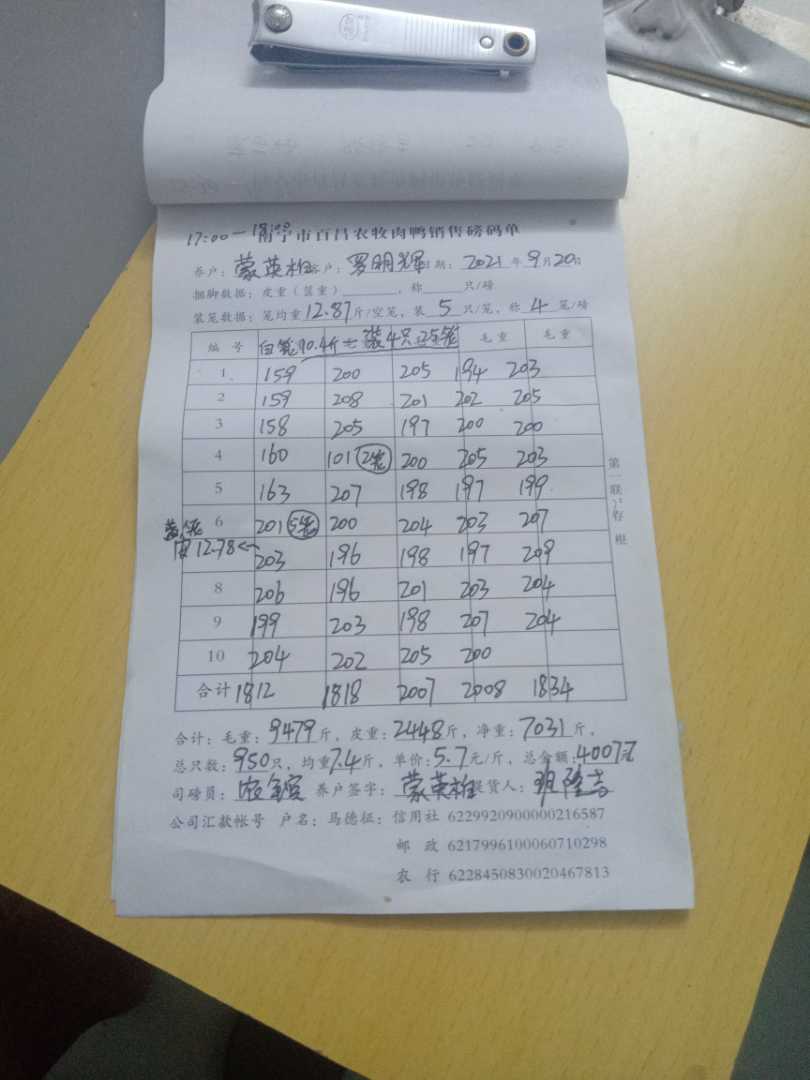 17:00—
南宁市百昌农牧肉鸭销售磅码单
养户：蒙英雄 客户：罗明辉 日期：2021年9月20日
捆脚数据：皮重（筐重）______，称______只/磅
装笼数据：笼均重12.87斤/空笼，装5只/笼，称4笼/磅
编号 白笼90.4斤 装4只 25笼 毛重 毛重
1 159 200 205 194 203
2 159 208 201 202 205
3 158 205 197 200 200
4 160 101 (2笼) 200 205 203
5 163 207 198 197 199
6 201 (5笼) 200 204 203 207
皮12.78← 203 196 198 197 209
8 206 196 201 203 204
9 199 203 198 207 204
10 204 202 205 200
合计 1812 1818 2007 2008 1834
第一联：存根
合计：毛重：9479斤，皮重：2448斤，净重：7031斤，
总只数：950只，均重7.4斤，单价：5.7元/斤，总金额：4007元
司磅员： 养户签字：蒙英雄 提货人：班隆吉
公司汇款帐号 户名：马德征：信用社 6229920900000216587
邮政 6217996100060710298
农行 6228450830020467813